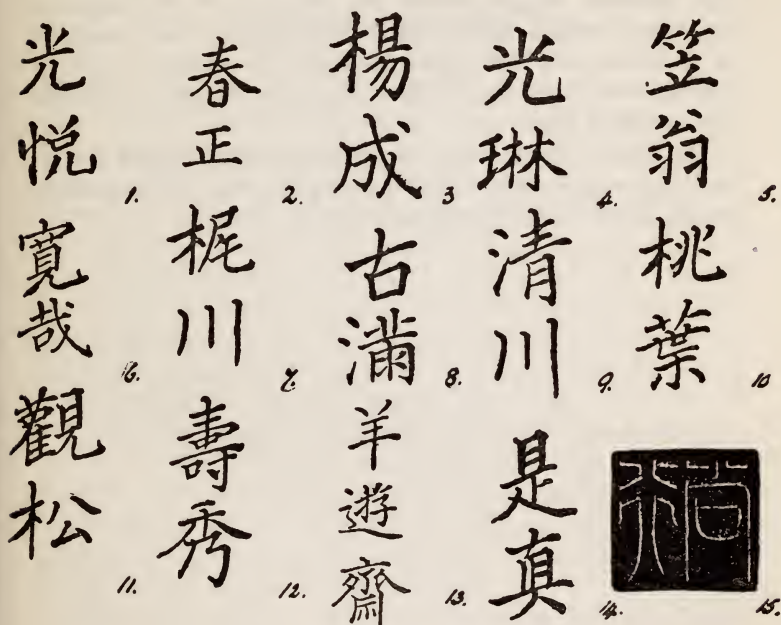 光悦 1.
春正 2.
楊成 3
光琳 4.
笠翁 5.
寛哉 6.
梶川 7.
古滿 8.
清川 9.
桃葉 10
觀松 11.
壽秀 12.
羊遊齋 13.
是真 14.
15.